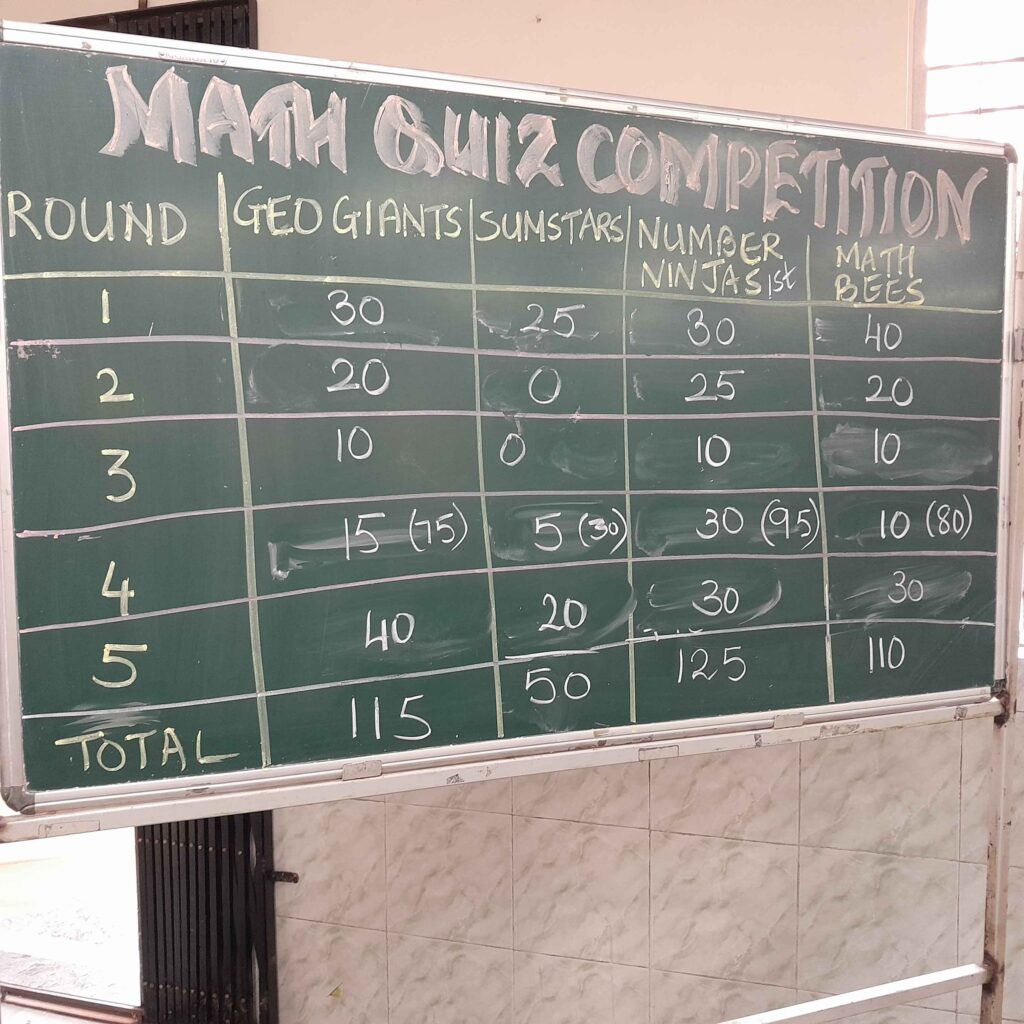 MATH QUIZ COMPETITION
ROUND GEO GIANTS SUMSTARS NUMBER NINJAS 1st MATH BEES
1 30 25 30 40
2 20 0 25 20
3 10 0 10 10
4 15 (75) 5 (30) 30 (95) 10 (80)
5 40 20 30 30
TOTAL 115 50 125 110